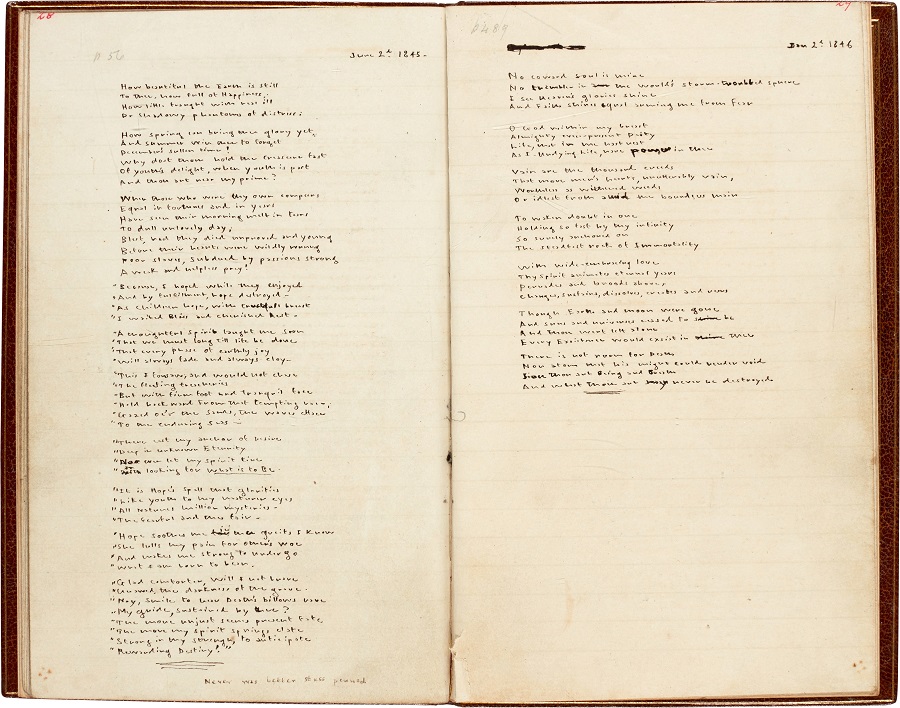 28
D 56
June 2d 1845-
How beautiful the Earth is still
To thee, how full of Happiness;
How little fraught with real ill
Or Shadowy phantoms of distress;
How spring can bring thee glory yet
And summer win thee to forget
December's sullen time!
Why dost thou hold the treasure fast
Of youth's delight, when youth is past
And thou art near thy prime?
When those who were thy own compeers
Equal in fortunes and in years
Have seen their morning melt in tears
To dull unlovely day;
Blest, had they died unproved and young
Before their hearts were wildly wrung
Poor slaves, subdued by passions strong
A weak and helpless prey!
"Because, I hoped while they enjoyed
"And by fulfilment, hope destroyed-
"As children hope, with trustful breast
"I waited Bliss and cherished Rest-
"A thoughtful Spirit taught me soon
"That we must long till life be done
"That every phase of earthly joy
"Will always fade and always cloy-
"This I foresaw, and would not chase
"The fleeting treacheries
"But with firm foot and tranquil face
"Held backward from that tempting race,
"Gazed o'er the Sands, the waves efface
"To the enduring seas-
"There cast my anchor of desire
"Deep in unknown Eternity
"Nor ever let my Spirit tire
"With looking for What is to Be.
"It is Hope's spell that glorifies
"Like youth to my maturer eyes
"All Nature's million mysteries-
"The fearful and the fair-
"Hope soothes me in the griefs I know
"She lulls my pain for others' woe
"And makes me strong to undergo
"What I am born to bear.
"Glad comforter, will I not brave
"Unawed the darkness of the grave.
"Nay, smile to hear Death's billows rave
"My guide, sustained by thee?
"The more unjust seems present fate
"The more my Spirit springs elate
"Strong in thy strength, to anticipate
"Rewarding Destiny!"
Never was better stuff penned
29
Jan 2d 1846
No coward soul is mine
No trembler in the world's storm-troubled sphere
I see Heaven's glories shine
And Faith shines equal arming me from Fear
O God within my breast
Almighty ever-present Deity
Life, that in me hast rest
As I Undying Life, have power in thee
Vain are the thousand creeds
That move men's hearts, unutterably vain,
Worthless as withered weeds
Or idlest froth amid the boundless main
To waken doubt in one
Holding so fast by thy infinity
So surely anchored on
The steadfast rock of Immortality
With wide-embracing love
Thy Spirit animates eternal years
Pervades and broods above,
Changes, sustains, dissolves, creates and rears
Though Earth and moon were gone
And suns and universes ceased to be
And Thou wert left alone
Every Existence would exist in thee
There is not room for Death
Nor atom that his might could render void
Since thou art Being and Breath
And what Thou art may never be destroyed